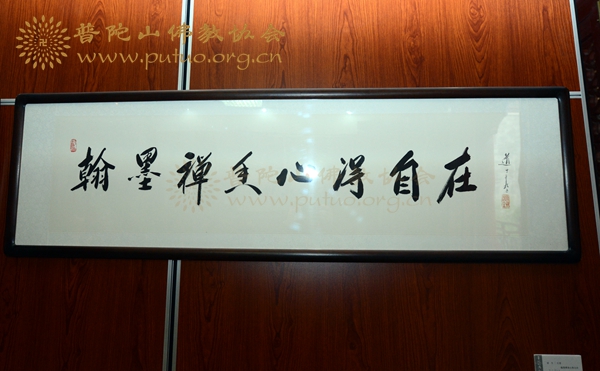 普陀山佛教协会
www.putuo.org.cn
翰墨禅香心得自在
普陀山佛教协会
www.putuo.org.cn